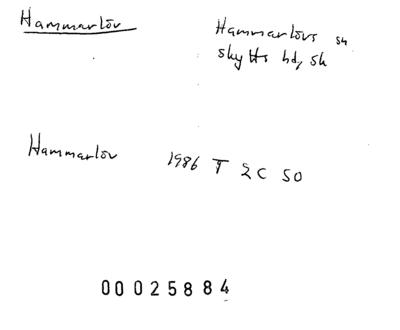 Hammarlöv
Hammarlövs sn
Skytts hd, Sk
Hammarlöv 1986 T 2C 50
00025884